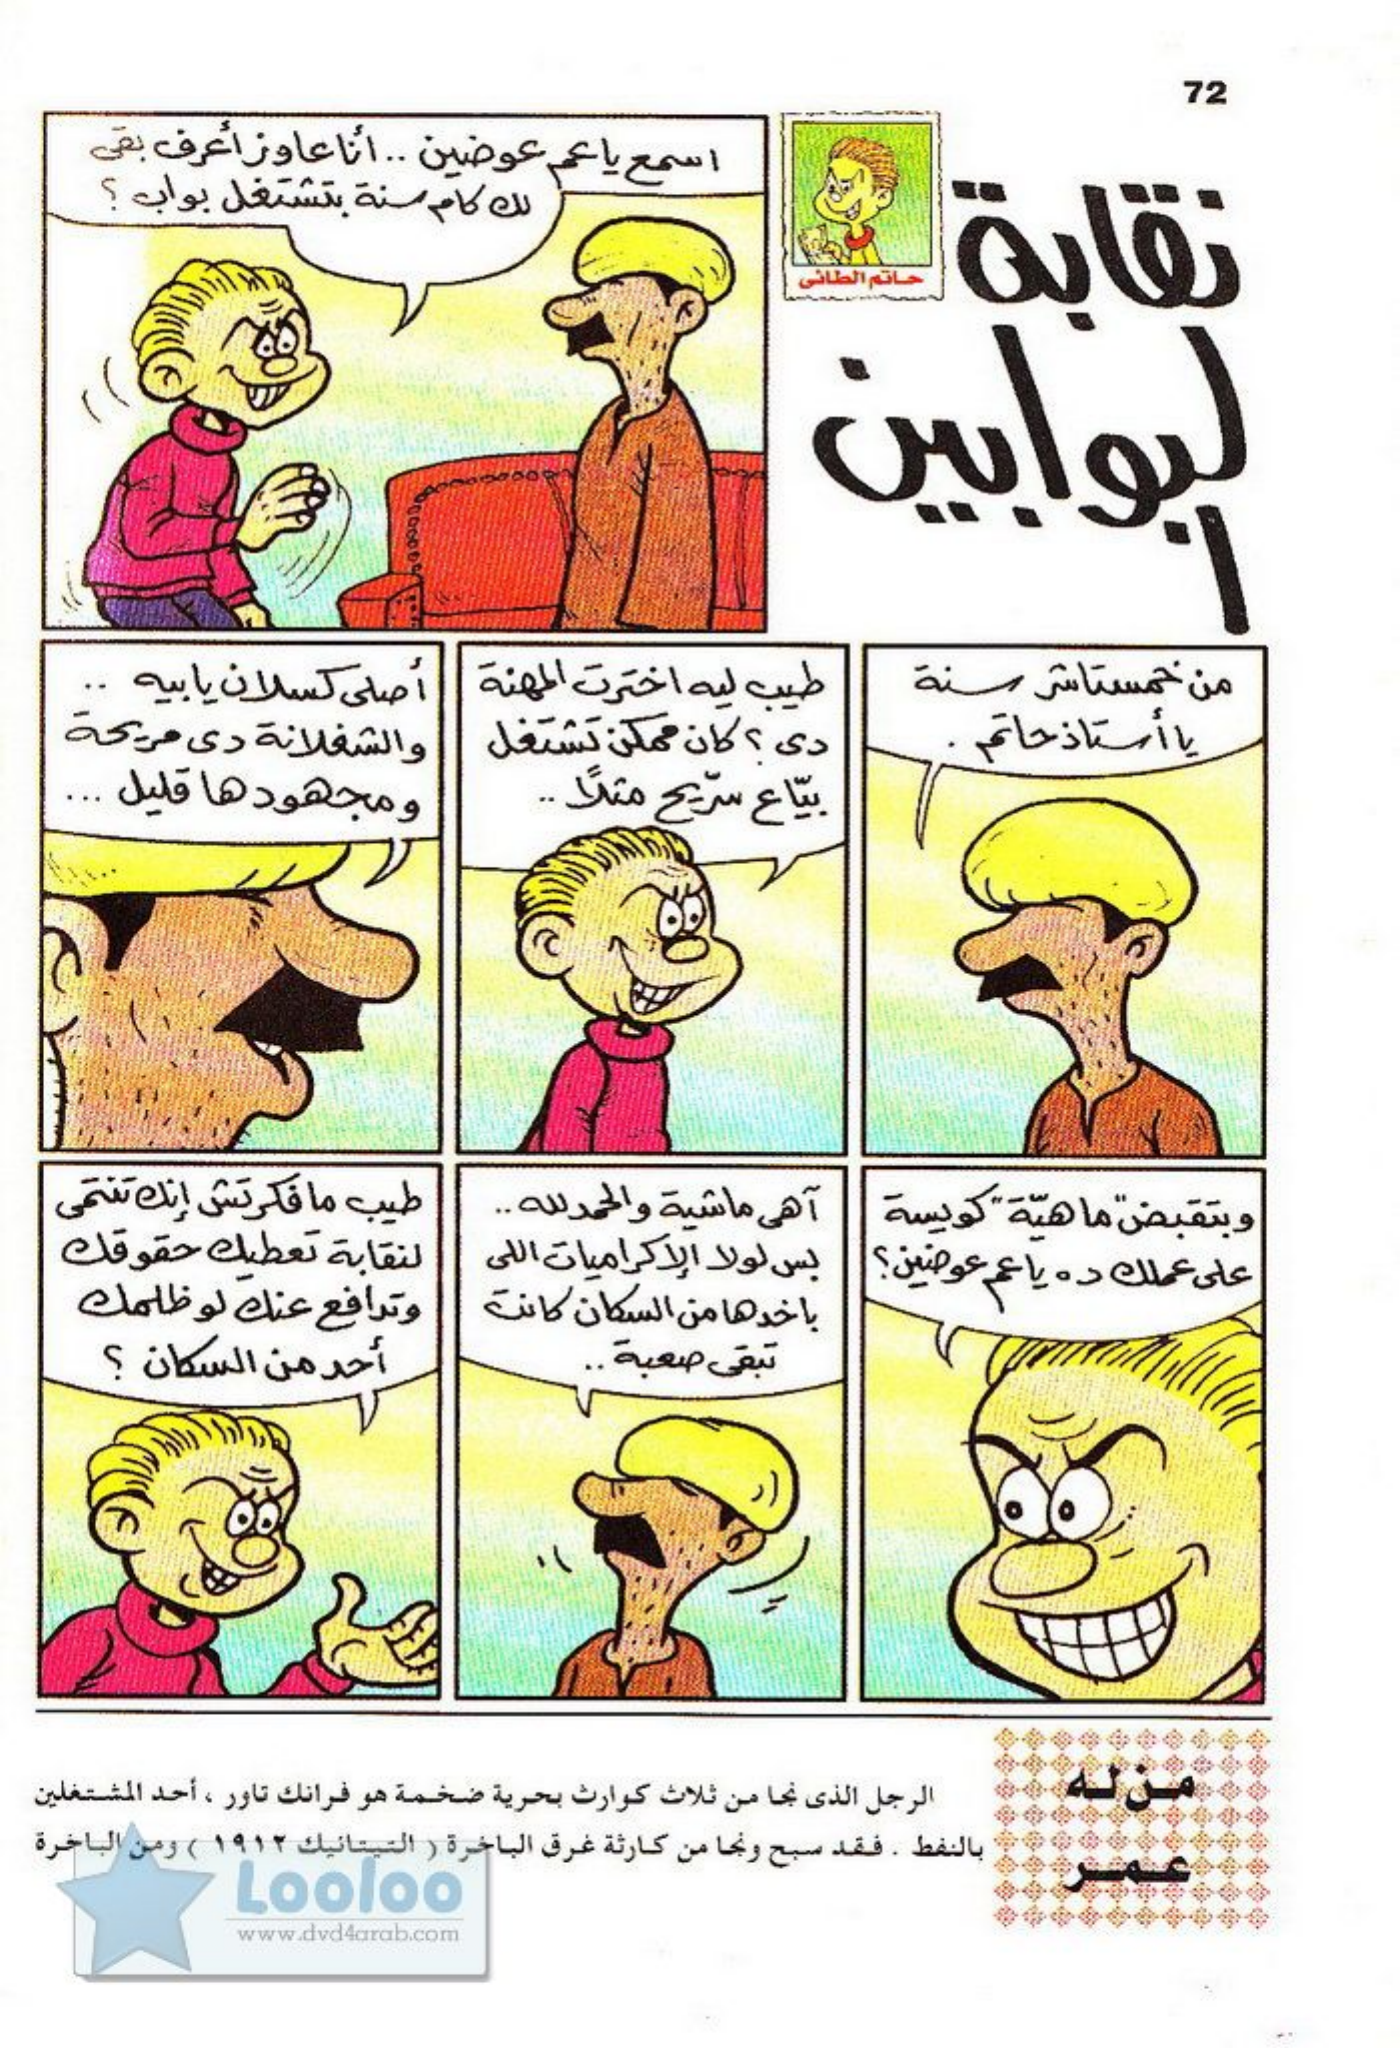 72
نقابة
البوابين
حاتم الطائى
اسمع ياعم عوضين .. أنا عاوز أعرف بقى
لك كام سنة بتشتغل بواب ؟
من خمستاشر سنة
يا أستاذ حاتم .
طيب ليه اخترت المهنة
دى ؟ كان ممكن تشتغل
بيّاع سرّيح مثلاً ..
أصلى كسلان يابيه ..
والشغلانة دى مريحة
ومجهودها قليل ...
وبتقبض "ماهيّة" كويسة
على عملك ده ياعم عوضين؟
آهى ماشية والحمد لله ..
بس لولا الإكراميات اللى
باخدها من السكان كانت
تبقى صعبة ..
طيب ما فكرتش إنك تنتمى
لنقابة تعطيك حقوقك
وتدافع عنك لو ظلمك
أحد من السكان ؟
من له
عمر
الرجل الذى نجا من ثلاث كوارث بحرية ضخمة هو فرانك تاور ، أحد المشتغلين
بالنفط . فقد سبح ونجا من كارثة غرق الباخرة ( التيتانيك ١٩١٢ ) ومن الباخرة
Looloo
www.dvd4arab.com